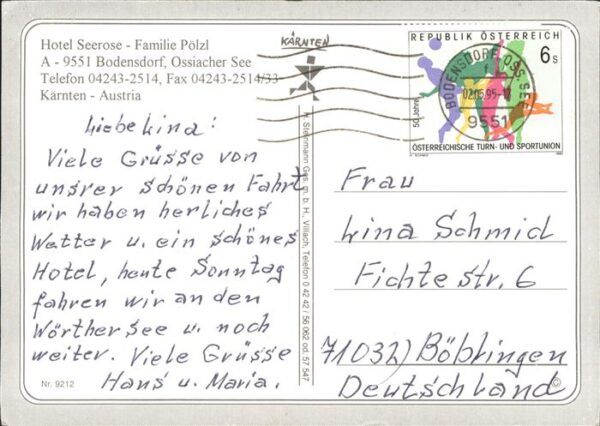 Hotel Seerose - Familie Pölzl
A - 9551 Bodensdorf, Ossiacher See
Telefon 04243-2514, Fax 04243-2514/33
Kärnten - Austria
KÄRNTEN
REPUBLIK ÖSTERREICH
6s
50 Jahre
ÖSTERREICHISCHE TURN- UND SPORTUNION
BODENSDORF, OSS. SEE
02.05.95-17
9551
Liebe Lina!
Viele Grüsse von
unsrer schönen Fahrt
wir haben herliches
Wetter u. ein schönes
Hotel, heute Sonntag
fahren wir an den
Wörthersee u. noch
weiter. Viele Grüsse
Hans u. Maria.
Nr. 9212
Steinmann Ges. m. b. H., Villach, Telefon 0 42 42 / 56 062 od. 57 547
Frau
Lina Schmid
Fichtestr. 6
71032) Böblingen
Deutschland
©